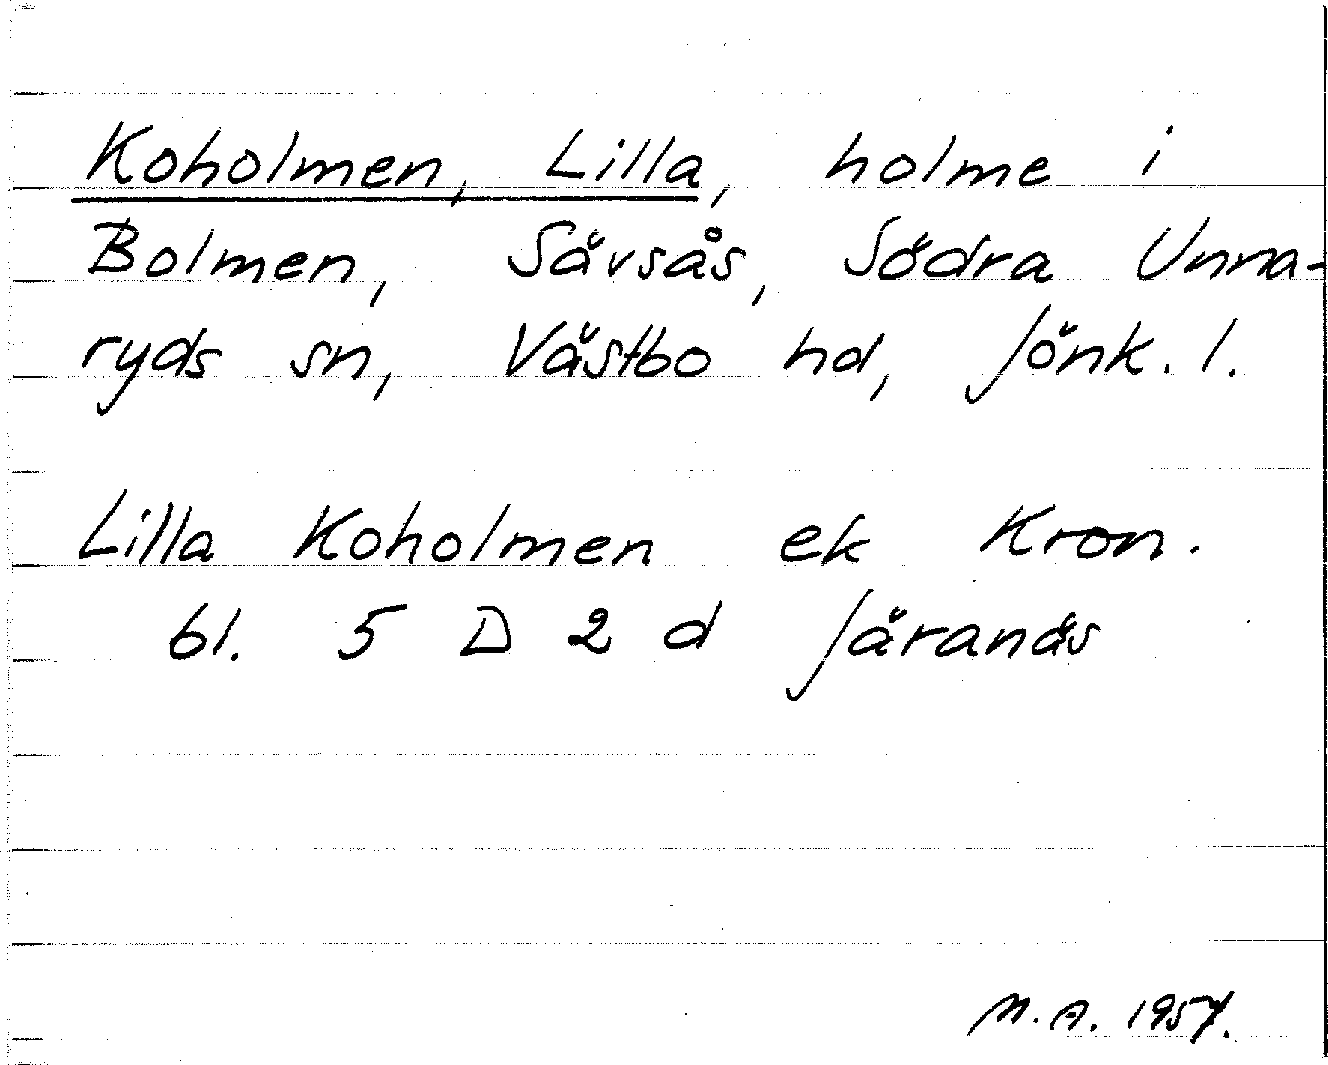 Koholmen, Lilla, holme i
Bolmen, Sävsås, Södra Unna-
ryds sn, Västbo hd, Jönk. l.
Lilla Koholmen ek Kron.
bl. 5 D 2 d Järanäs
M. A. 1957.